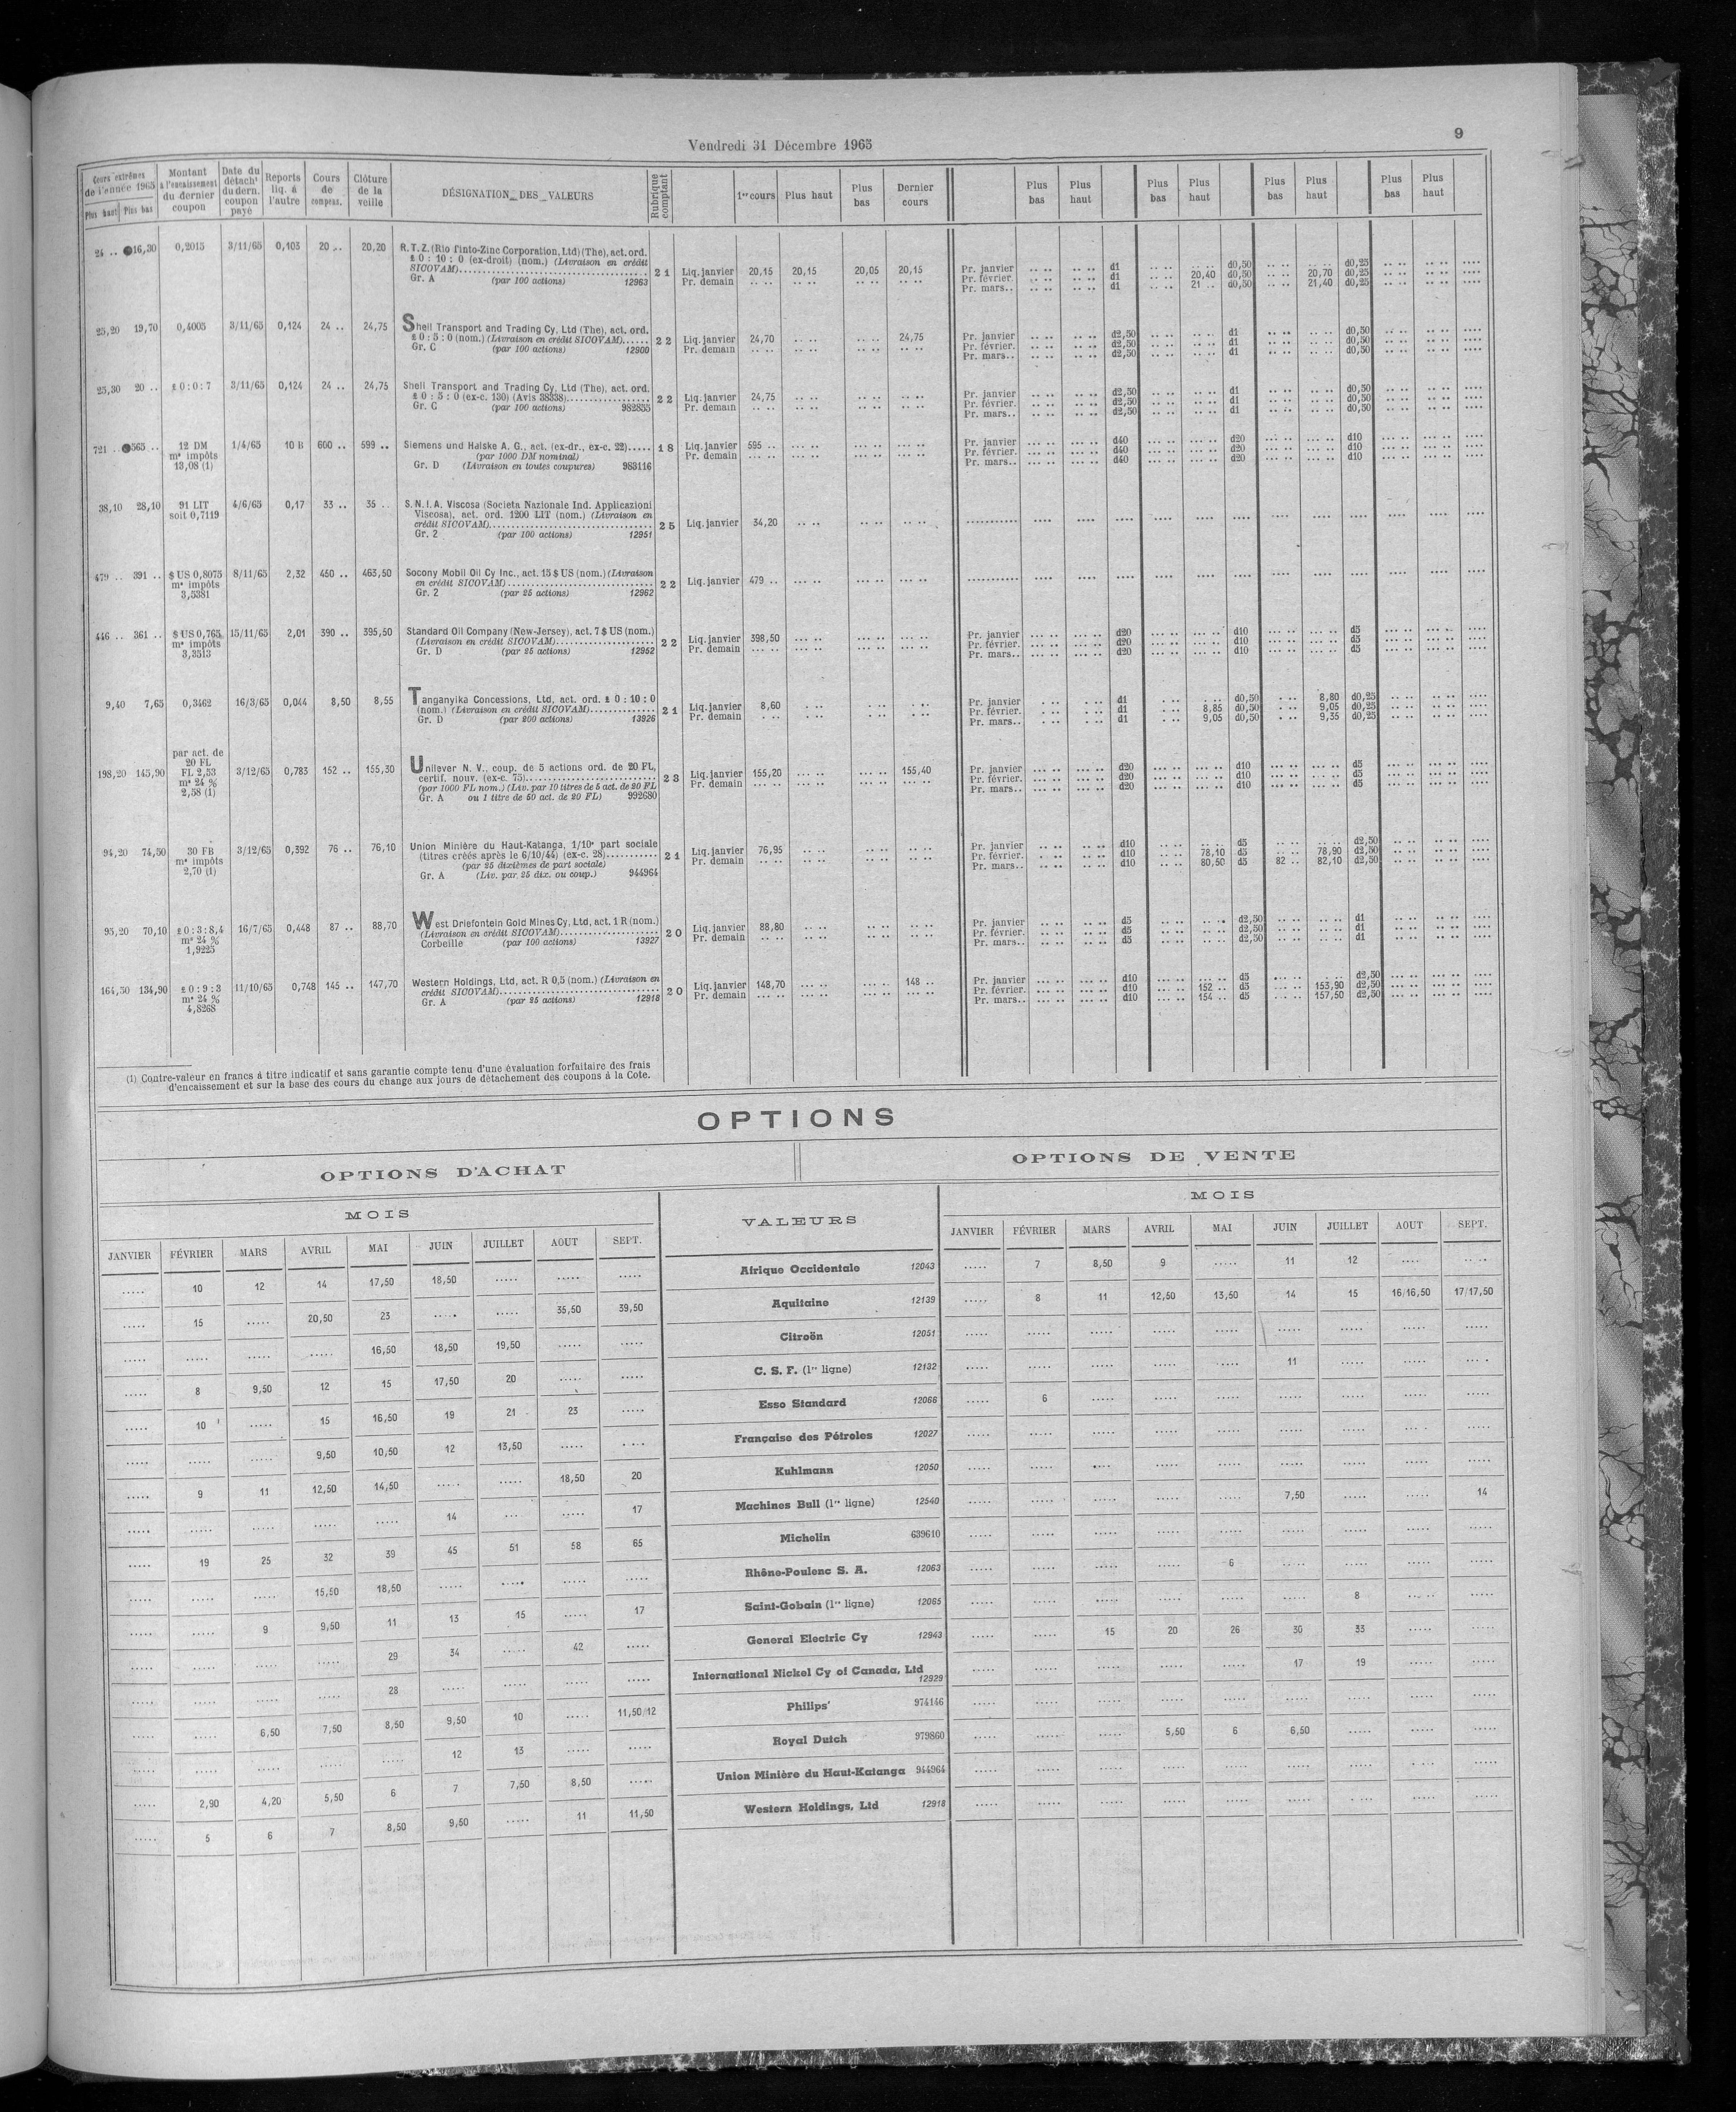 Vendredi 31 Décembre 1965
9
Cours extrêmes de l'année 1965 Plus haut Plus bas | Montant à l'encaissement du dernier coupon | Date du détach^t du dern. coupon payé | Reports liq. à l'autre | Cours de compens. | Clôture de la veille | DÉSIGNATION DES VALEURS | Rubrique comptant | 1er cours | Plus haut | Plus bas | Dernier cours | Plus bas | Plus haut | Plus bas | Plus haut | Plus bas | Plus haut | Plus bas | Plus haut
24 .. 16,30 0,2015 3/11/65 0,103 20 .. 20,20 R.T.Z. (Rio Tinto-Zinc Corporation, Ltd) (The), act. ord.
£ 0 : 10 : 0 (ex-droit) (nom.) (Livraison en crédit
SICOVAM) 21 Liq. janvier 20,15 20,15 20,05 20,15 Pr. janvier .. .. .. .. d1 .. .. .. .. d0,50 .. .. .. .. d0,25 .. .. .. .. ....
Gr. A (par 100 actions) 12963 Pr. demain .. .. .. .. .. .. .. .. Pr. février. .. .. .. .. d1 .. .. 20,40 d0,50 .. .. 20,70 d0,25 .. .. .. .. ....
Pr. mars.. .. .. .. .. d1 .. .. 21 .. d0,50 .. .. 21,40 d0,25 .. .. .. .. ....
25,20 19,70 0,4005 3/11/65 0,124 24 .. 24,75 Shell Transport and Trading Cy, Ltd (The), act. ord.
£ 0 : 5 : 0 (nom.) (Livraison en crédit SICOVAM)...... 22 Liq. janvier 24,70 .. .. .. .. 24,75 Pr. janvier .. .. .. .. d2,50 .. .. .. .. d1 .. .. .. .. d0,50 .. .. .. .. ....
Gr. C (par 100 actions) 12900 Pr. demain .. .. .. .. .. .. .. .. Pr. février. .. .. .. .. d2,50 .. .. .. .. d1 .. .. .. .. d0,50 .. .. .. .. ....
Pr. mars.. .. .. .. .. d2,50 .. .. .. .. d1 .. .. .. .. d0,50 .. .. .. .. ....
25,30 20 .. £ 0 : 0 : 7 3/11/65 0,124 24 .. 24,75 Shell Transport and Trading Cy, Ltd (The), act. ord.
£ 0 : 5 : 0 (ex-c. 130) (Avis 38338) 22 Liq. janvier 24,75 .. .. .. .. .. .. Pr. janvier .. .. .. .. d2,50 .. .. .. .. d1 .. .. .. .. d0,50 .. .. .. .. ....
Gr. C (par 100 actions) 982855 Pr. demain .. .. .. .. .. .. .. .. Pr. février. .. .. .. .. d2,50 .. .. .. .. d1 .. .. .. .. d0,50 .. .. .. .. ....
Pr. mars.. .. .. .. .. d2,50 .. .. .. .. d1 .. .. .. .. d0,50 .. .. .. .. ....
721 .. 565 .. 12 DM 1/4/65 10 B 600 .. 599 .. Siemens und Halske A. G., act. (ex-dr., ex-c. 22)..... 18 Liq. janvier 595 .. ... .. ... .. ... .. Pr. janvier ... .. ... .. d40 ... .. ... .. d20 ... .. ... .. d10 ... .. ... .. ....
m^s impôts (par 1000 DM nominal) Pr. demain ... .. ... .. ... .. ... .. Pr. février. ... .. ... .. d40 ... .. ... .. d20 ... .. ... .. d10 ... .. ... .. ....
13,08 (1) Gr. D (Livraison en toutes coupures) 983116 Pr. mars.. ... .. ... .. d40 ... .. ... .. d20 ... .. ... .. d10 ... .. ... .. ....
38,10 28,10 91 LIT 4/6/65 0,17 33 .. 35 .. S.N.I.A. Viscosa (Societa Nazionale Ind. Applicazioni
soit 0,7119 Viscosa), act. ord. 1200 LIT (nom.) (Livraison en
crédit SICOVAM) 25 Liq. janvier 34,20 .. .. .. .. .. ..
Gr. 2 (par 100 actions) 12951
479 .. 391 .. $ US 0,8075 8/11/65 2,32 450 .. 463,50 Socony Mobil Oil Cy Inc., act. 15 $ US (nom.) (Livraison
m^s impôts en crédit SICOVAM) 22 Liq. janvier 479 .. ... .. ... .. ... ..
3,5381 Gr. 2 (par 25 actions) 12962
446 .. 361 .. $ US 0,765 15/11/65 2,01 390 .. 395,50 Standard Oil Company (New-Jersey), act. 7 $ US (nom.)
m^s impôts (Livraison en crédit SICOVAM) 22 Liq. janvier 398,50 ... .. ... .. ... .. Pr. janvier ... .. ... .. d20 ... .. ... .. d10 ... .. ... .. d5 ... .. ... .. ....
3,3513 Gr. D (par 25 actions) 12952 Pr. demain ... .. ... .. ... .. ... .. Pr. février. ... .. ... .. d20 ... .. ... .. d10 ... .. ... .. d5 ... .. ... .. ....
Pr. mars.. ... .. ... .. d20 ... .. ... .. d10 ... .. ... .. d5 ... .. ... .. ....
9,40 7,65 0,3462 16/3/65 0,044 8,50 8,55 Tanganyika Concessions, Ltd, act. ord. £ 0 : 10 : 0
(nom.) (Livraison en crédit SICOVAM) 21 Liq. janvier 8,60 . .. . .. . .. Pr. janvier . .. . .. d1 . .. . .. d0,50 . .. 8,80 d0,25 .. .. .. .. ....
Gr. D (par 200 actions) 13926 Pr. demain . .. . .. . .. . .. Pr. février. . .. . .. d1 . .. 8,85 d0,50 . .. 9,05 d0,25 .. .. .. .. ....
Pr. mars.. . .. . .. d1 . .. 9,05 d0,50 . .. 9,35 d0,25 .. .. .. .. ....
par act. de
20 FL
198,20 145,90 FL 2,53 3/12/65 0,783 152 .. 155,30 Unilever N. V., coup. de 5 actions ord. de 20 FL,
m^s 24 % certif. nouv. (ex-c. 75) 23 Liq. janvier 155,20 ... .. ... .. 155,40 Pr. janvier ... .. ... .. d20 ... .. ... .. d10 ... .. ... .. d5 ... .. ... .. ....
2,58 (1) (par 1000 FL nom.) (Liv. par 10 titres de 5 act. de 20 FL Pr. demain ... .. ... .. ... .. ... .. Pr. février. ... .. ... .. d20 ... .. ... .. d10 ... .. ... .. d5 ... .. ... .. ....
Gr. A ou 1 titre de 50 act. de 20 FL) 992680 Pr. mars.. ... .. ... .. d20 ... .. ... .. d10 ... .. ... .. d5 ... .. ... .. ....
94,20 74,50 30 FB 3/12/65 0,392 76 .. 76,10 Union Minière du Haut-Katanga, 1/10e part sociale
m^s impôts (titres créés après le 6/10/44) (ex-c. 28) 21 Liq. janvier 76,95 .. .. .. .. .. .. Pr. janvier .. .. .. .. d10 .. .. .. .. d5 .. .. .. .. d2,50 .. .. .. .. ....
2,70 (1) (par 25 dixièmes de part sociale) Pr. demain .. .. .. .. .. .. .. .. Pr. février. .. .. .. .. d10 .. .. 78,10 d5 .. .. 78,90 d2,50 .. .. .. .. ....
Gr. A (Liv. par 25 dix. ou coup.) 944964 Pr. mars.. .. .. .. .. d10 .. .. 80,50 d5 82 .. 82,10 d2,50 .. .. .. .. ....
95,20 70,10 £ 0 : 3 : 8,4 16/7/65 0,448 87 .. 88,70 West Driefontein Gold Mines Cy, Ltd, act. 1 R (nom.)
m^s 24 % (Livraison en crédit SICOVAM) 20 Liq. janvier 88,80 .. .. .. .. .. .. Pr. janvier .. .. .. .. d5 .. .. .. .. d2,50 .. .. .. .. d1 .. .. .. .. ....
1,9225 Corbeille (par 100 actions) 13927 Pr. demain .. .. .. .. .. .. .. .. Pr. février. .. .. .. .. d5 .. .. .. .. d2,50 .. .. .. .. d1 .. .. .. .. ....
Pr. mars.. .. .. .. .. d5 .. .. .. .. d2,50 .. .. .. .. d1 .. .. .. .. ....
164,50 134,90 £ 0 : 9 : 3 11/10/65 0,748 145 .. 147,70 Western Holdings, Ltd, act. R 0,5 (nom.) (Livraison en
m^s 24 % crédit SICOVAM) 20 Liq. janvier 148,70 ... .. ... .. 148 .. Pr. janvier ... .. ... .. d10 ... .. ... .. d5 ... .. ... .. d2,50 ... .. ... .. ....
4,8268 Gr. A (par 25 actions) 12918 Pr. demain ... .. ... .. ... .. ... .. Pr. février. ... .. ... .. d10 ... .. 152 .. d5 ... .. 153,90 d2,50 ... .. ... .. ....
Pr. mars.. ... .. ... .. d10 ... .. 154 .. d5 ... .. 157,50 d2,50 ... .. ... .. ....
(1) Contre-valeur en francs à titre indicatif et sans garantie compte tenu d'une évaluation forfaitaire des frais
d'encaissement et sur la base des cours du change aux jours de détachement des coupons à la Cote.
OPTIONS
OPTIONS D'ACHAT | OPTIONS DE VENTE
MOIS | VALEURS | MOIS
JANVIER FÉVRIER MARS AVRIL MAI JUIN JUILLET AOUT SEPT. | JANVIER FÉVRIER MARS AVRIL MAI JUIN JUILLET AOUT SEPT.
..... 10 12 14 17,50 18,50 ..... ..... ..... Afrique Occidentale 12043 ..... 7 8,50 9 ..... 11 12 ..... .....
..... 15 ..... 20,50 23 ..... ..... 35,50 39,50 Aquitaine 12139 ..... 8 11 12,50 13,50 14 15 16/16,50 17/17,50
..... ..... ..... ..... 16,50 18,50 19,50 ..... ..... Citroën 12051 ..... ..... ..... ..... ..... ..... ..... ..... .....
..... 8 9,50 12 15 17,50 20 ..... ..... C. S. F. (1re ligne) 12132 ..... ..... ..... ..... ..... 11 ..... ..... .....
..... 10 ..... 15 16,50 19 21 23 ..... Esso Standard 12066 ..... 6 ..... ..... ..... ..... ..... ..... .....
..... ..... ..... 9,50 10,50 12 13,50 ..... ..... Française des Pétroles 12027 ..... ..... ..... ..... ..... ..... ..... ..... .....
..... 9 11 12,50 14,50 ..... ..... 18,50 20 Kuhlmann 12050 ..... ..... ..... ..... ..... ..... ..... ..... .....
..... ..... ..... ..... ..... 14 ... ..... 17 Machines Bull (1re ligne) 12540 ..... ..... ..... ..... ..... 7,50 ..... ..... 14
..... 19 25 32 39 45 51 58 65 Michelin 639610 ..... ..... ..... ..... ..... ..... ..... ..... .....
..... ..... ..... 15,50 18,50 ..... ..... ..... ..... Rhône-Poulenc S. A. 12063 ..... ..... ..... ..... 6 ..... ..... ..... .....
..... ..... 9 9,50 11 13 15 ..... 17 Saint-Gobain (1re ligne) 12065 ..... ..... ..... ..... ..... ..... 8 ..... .....
..... ..... ..... ..... 29 34 ..... 42 ..... General Electric Cy 12943 ..... ..... 15 20 26 30 33 ..... .....
..... ..... ..... ..... 28 ..... ..... ..... ..... International Nickel Cy of Canada, Ltd 12929 ..... ..... ..... ..... ..... 17 19 ..... .....
..... ..... 6,50 7,50 8,50 9,50 10 ..... 11,50/12 Philips' 974146 ..... ..... ..... ..... ..... ..... ..... ..... .....
..... ..... ..... ..... ..... 12 13 ..... ..... Royal Dutch 979860 ..... ..... ..... 5,50 6 6,50 ..... ..... .....
..... 2,90 4,20 5,50 6 7 7,50 8,50 ..... Union Minière du Haut-Katanga 944964 ..... ..... ..... ..... ..... ..... ..... ..... .....
..... 5 6 7 8,50 9,50 ..... 11 11,50 Western Holdings, Ltd 12918 ..... ..... ..... ..... ..... ..... ..... ..... .....